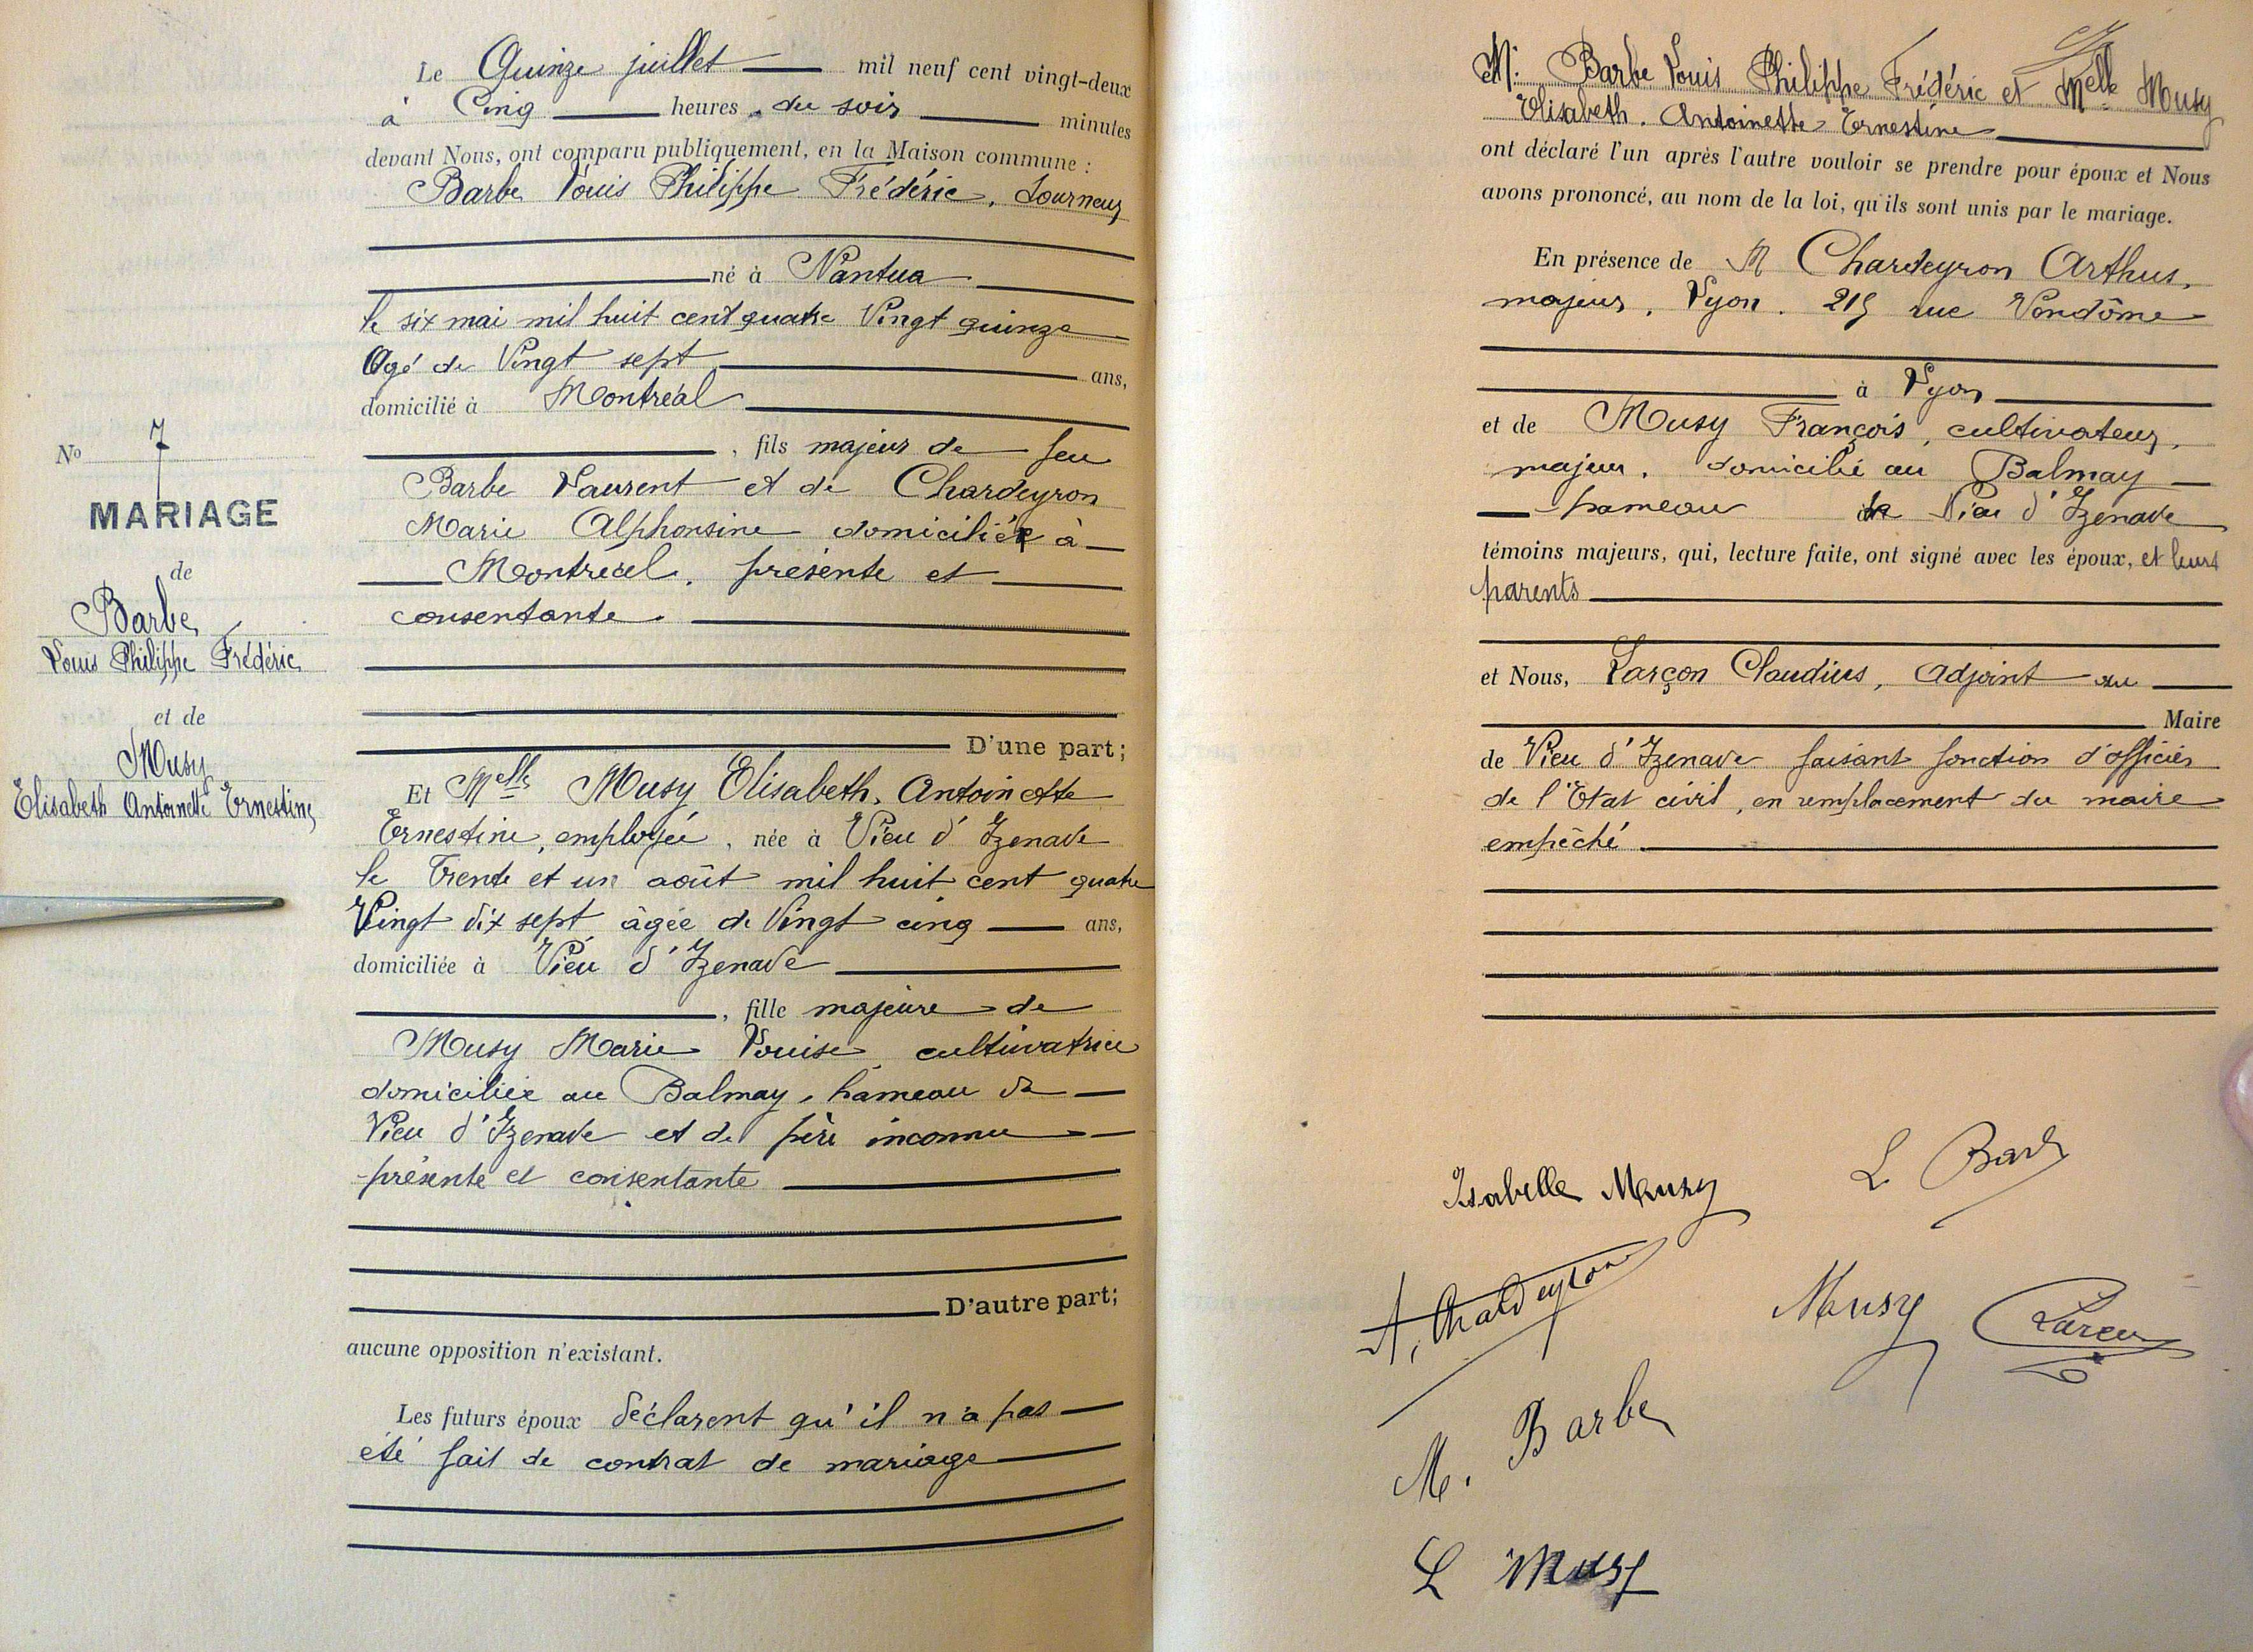 Le Quinze juillet mil neuf cent vingt-deux
à Cinq heures du soir minutes
devant Nous, ont comparu publiquement, en la Maison commune :
Barbe Louis Philippe Frédéric, Tourneur
né à Nantua
le six mai mil huit cent quatre Vingt quinze
Agé de Vingt sept ans,
domicilié à Montréal
, fils majeur de feu
Barbe Laurent et de Chardeyron
Marie Alphonsine domiciliée à
Montréal, présente et
consentante.
D'une part;
Nº 7
MARIAGE
de
Barbe
Louis Philippe Frédéric
et de
Musy
Elisabeth Antoinette Ernestine
Et Melle Musy Elisabeth, Antoinette
Ernestine, employée, née à Vieu d'Izenave
le Trente et un août mil huit cent quatre
Vingt dix sept âgée de Vingt cinq ans,
domiciliée à Vieu d'Izenave
, fille majeure de
Musy Marie Louise, cultivatrice
domiciliée au Balmay, hameau de
Vieu d'Izenave et de père inconnu
présente et consentante
D'autre part;
aucune opposition n'existant.
Les futurs époux déclarent qu'il n'a pas
été fait de contrat de mariage
M. Barbe Louis Philippe Frédéric et Melle Musy
Elisabeth. Antoinette Ernestine
ont déclaré l'un après l'autre vouloir se prendre pour époux et Nous
avons prononcé, au nom de la loi, qu'ils sont unis par le mariage.
En présence de M Chardeyron Arthus,
majeur, Lyon. 215 rue Vendôme
à Lyon
et de Musy François, cultivateur,
majeur, domicilié au Balmay
hameau de Vieu d'Izenave
témoins majeurs, qui, lecture faite, ont signé avec les époux, et leurs
parents
et Nous, Larçon Claudius, Adjoint au
Maire
de Vieu d'Izenave faisant fonction d'officier
de l'Etat civil, en remplacement du maire
empêché
Isabelle Musy
L Barbe
A. Chardeyron
Musy
M. Barbe
L Musy